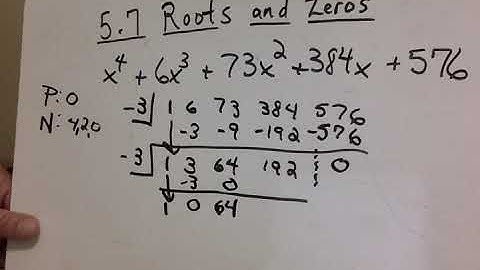 5.7 Roots and Zeros
x⁴ + 6x³ + 73x² + 384x + 576
P: 0
N: 4,2,0
-3 | 1 6 73 384 576
-3 -9 -192 -576
-3 | 1 3 64 192 0
-3 0
1 0 64